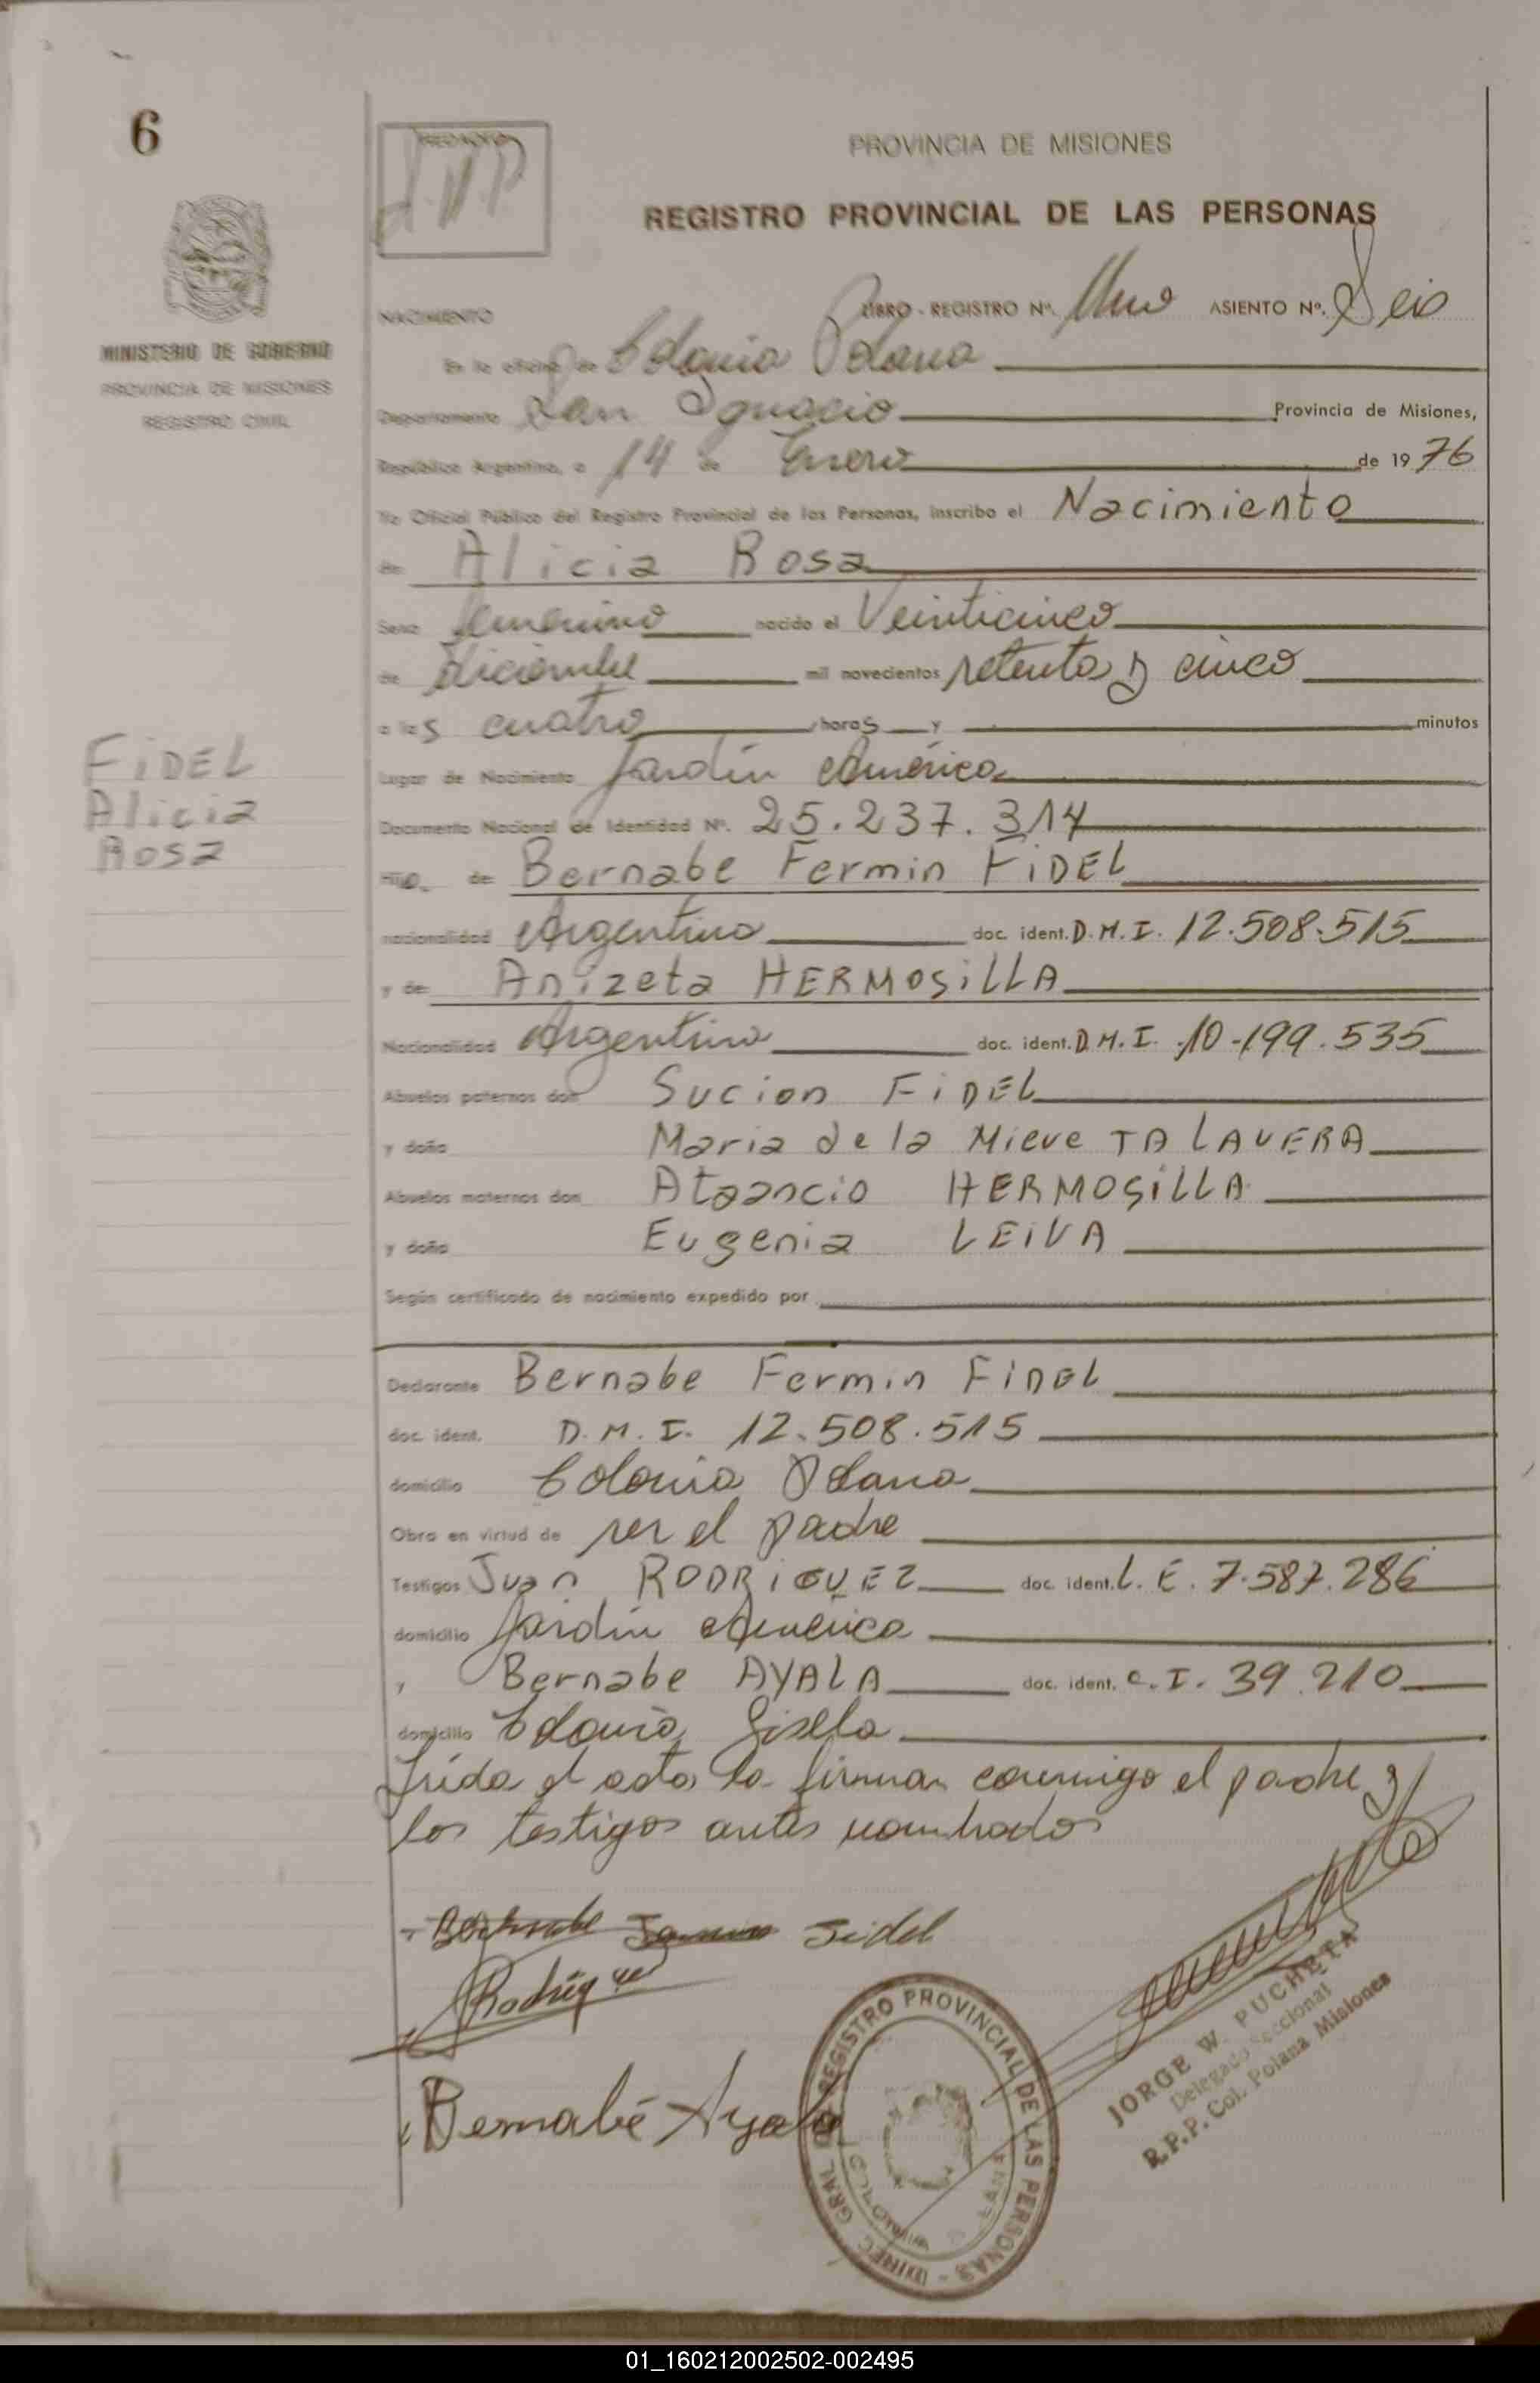 6
PROVINCIA DE MISIONES
REGISTRO PROVINCIAL DE LAS PERSONAS
NACIMIENTO
LIBRO - REGISTRO Nº. Uno ASIENTO Nº. Seis
MINISTERIO DE GOBIERNO
PROVINCIA DE MISIONES
REGISTRO CIVIL
En la oficina de Colonia Polana
Departamento San Ignacio Provincia de Misiones,
República Argentina, a 14 de Enero de 1976
Yo Oficial Público del Registro Provincial de las Personas, inscribo el Nacimiento
de Alicia Rosa
Sexo femenino nacido el Veinticinco
de diciembre mil novecientos setenta y cinco
a las cuatro horas y minutos
FiDEL
Alicia
Rosa
Lugar de Nacimiento Jardín América
Documento Nacional de Identidad Nº. 25.237.314
Hija de Bernabe Fermin FiDEL
nacionalidad Argentina doc. ident. D.M.I. 12.508.515
y de Anizeta HERMOSiLLA
Nacionalidad Argentina doc. ident. D.M.I. 10.199.535
Abuelos paternos don Sucion FiDEL
y doña Maria de la Nieve TALAVERA
Abuelos maternos don HERMOSiLLA
y doña Eugenia LEiVA
Según certificado de nacimiento expedido por
Declarante Bernabe Fermin FiDEL
doc. ident. D.M.I. 12.508.515
domicilio Colonia Polana
Obra en virtud de ser el padre
Testigos Juan RODRiGUEZ doc. ident. L.E. 7.587.286
domicilio Jardín América
y Bernabe AYALA doc. ident. C.I. 39.210
domicilio Colonia Gisela
Leída el acta la firman conmigo el padre y
los testigos antes nombrados
Bernabe Fermin Fidel
Rodriguez
Bernabé Ayala
REGISTRO PROVINCIAL DE LAS PERSONAS - DIREC. GRAL.
COLONIA POLANA
JORGE W. PUCHETA
Delegado Seccional
R.P.P. Col. Polana Misiones
01_160212002502-002495